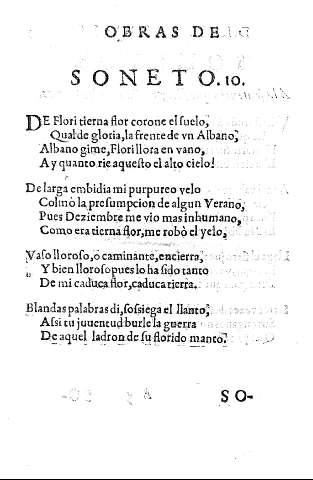 OBRAS DE
SONETO. 10.
DE Flori tierna flor corone el suelo,
Qual de gloria, la frente de vn Albano,
Albano gime, Flori llora en vano,
Ay quanto rie aquesto el alto cielo!
De larga embidia mi purpureo velo
Colmò la presumpcion de algun Verano,
Pues Deziembre me vio mas inhumano,
Como era tierna flor, me robò el yelo,
Vaso lloroso, ò caminante, encierra,
Y bien lloroso pues lo ha sido tanto
De mi caduca flor, caduca tierra.
Blandas palabras di, sossiega el llanto,
Assi tu juuentud burle la guerra
De aquel ladron de su florido manto.
SO-